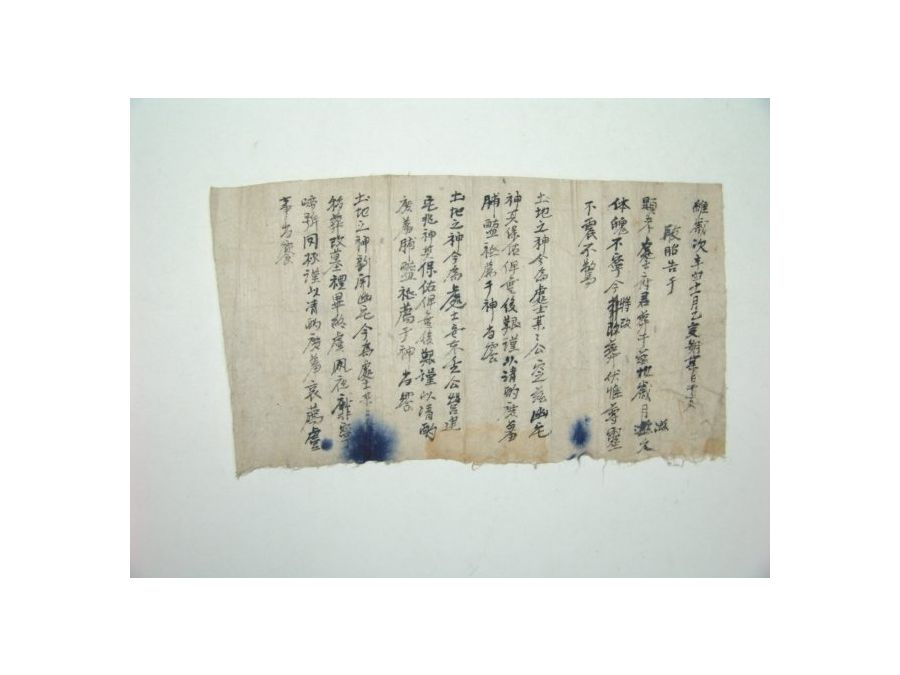 維歲次辛 十一月乙亥朔某日干支
敢昭告于
顯考處士府君葬于茲地歲月滋久
体魄不寧今將改葬伏惟尊靈
不震不驚
土地之神今爲處士某公窆茲幽宅
神其保佑俾無後艱謹以清酌 薦
脯醢祗薦于神尙饗
土地之神今爲處士 公營建
宅兆神其保佑俾無後艱謹以清酌
庶羞脯醢祗薦于神尙饗
土地之神新開幽宅今爲處士某
移葬改墓禮畢終虞夙夜靡寧
啼號罔極謹以清酌庶羞哀薦虞
事尙饗